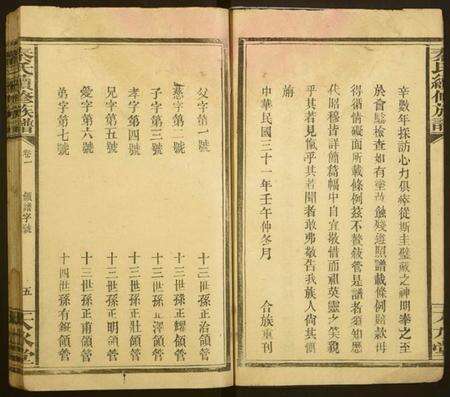 辛數年採訪心力俱瘁從斯圭璧藏之神開奉之至
於會驗檢查如有塗蝕殘遺照譜載條例賠款毋
得循情後面所載條例茲不贅管是譜者須知歷
代昭穆皆詳簡篇中自宜敬惜而祖英靈之笑貌
乎其若見愾乎其若聞者敢弗敬告我族人尚其愼
旃
中華民國三十一年壬午仲冬月 合族重刊
秦氏續修族譜
卷一
領譜字號
五
父字第一號 十三世孫正治領管
慈字第二號 十三世孫正耀領管
子字第三號 十三世孫正澤領管
孝字第四號 十三世孫正壯領管
兄字第五號 十三世孫正明領管
愛字第六號 十三世孫正甫領管
弟字第七號 十四世孫有領管